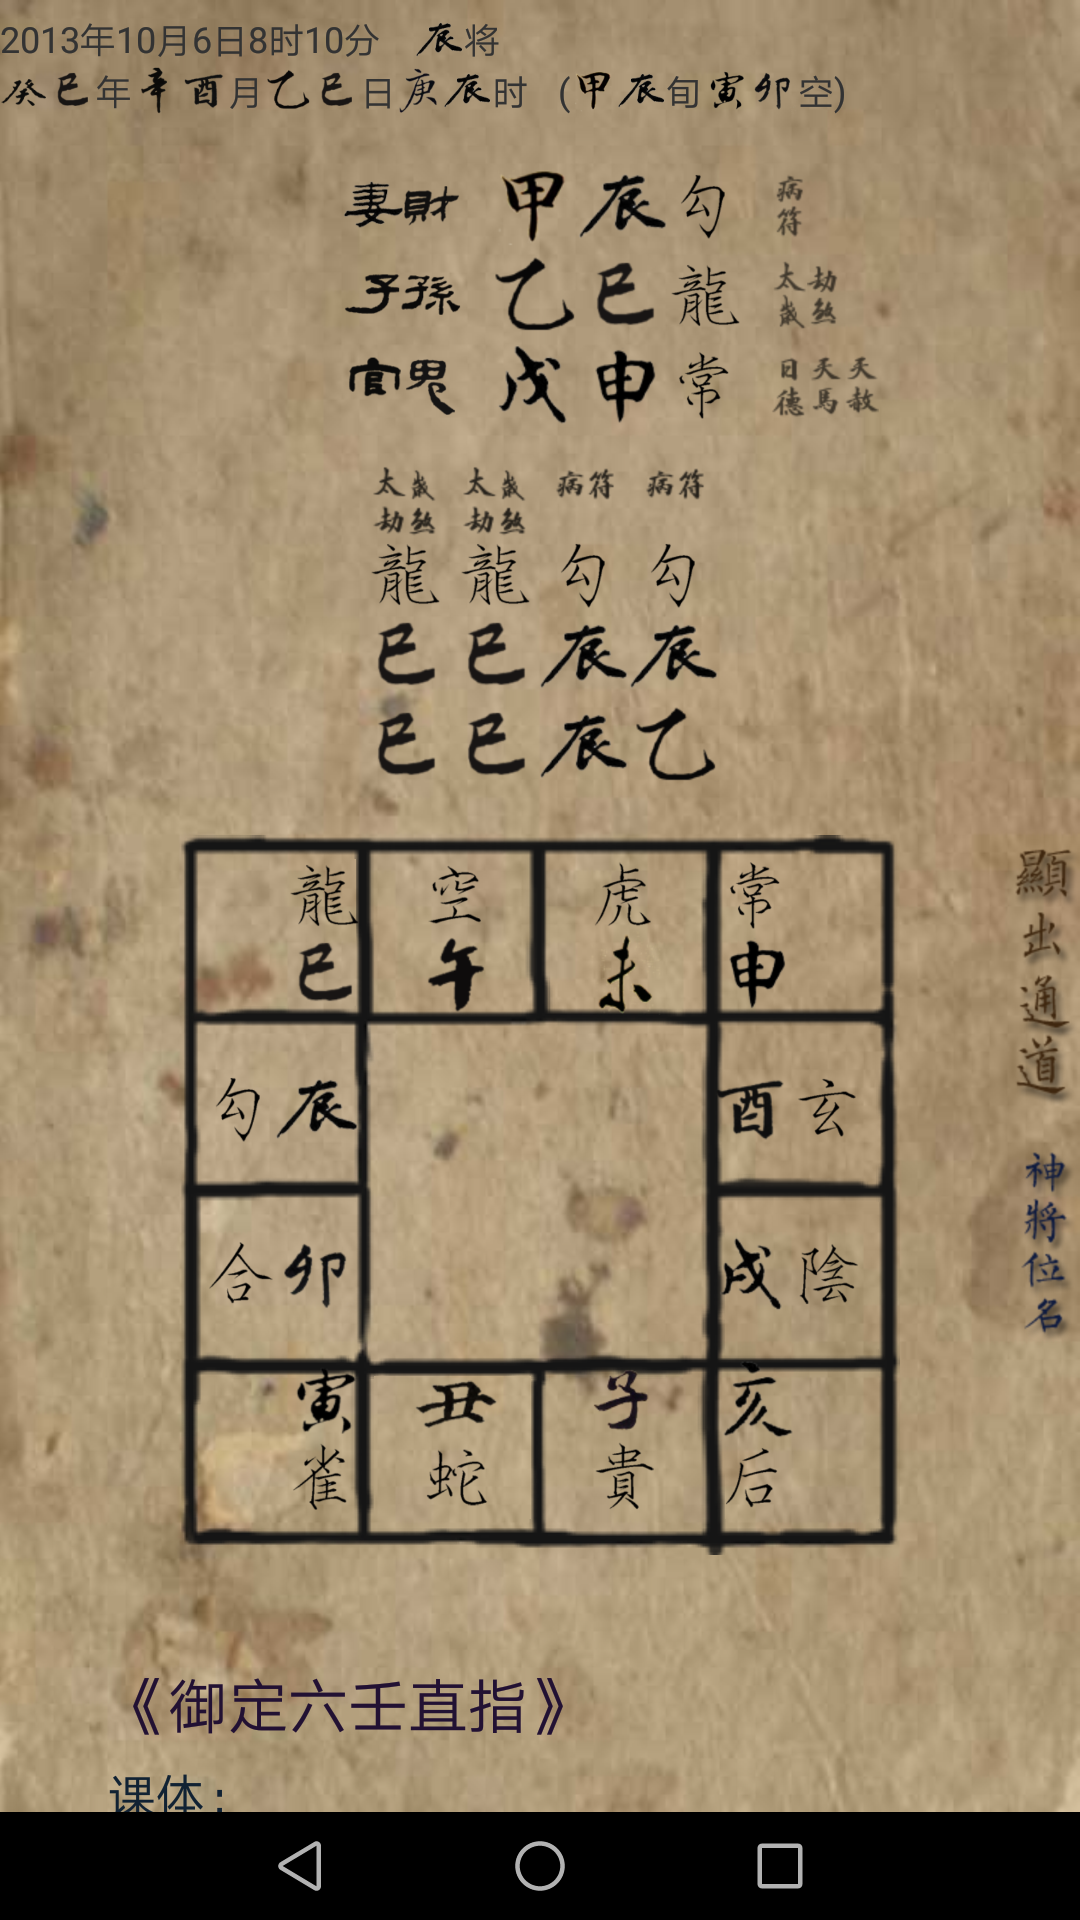 2013年10月6日8时10分 辰将
癸巳年辛酉月乙巳日庚辰时 (甲辰旬寅卯空)
妻財 甲辰勾 病符
子孫 乙巳龍 太歲 劫煞
官鬼 戊申常 日德 天馬 天赦
太歲 太歲 病符 病符
劫煞 劫煞
龍 龍 勾 勾
巳 巳 辰 辰
巳 巳 辰 乙
龍 空 虎 常
巳 午 未 申
勾辰 酉玄
合卯 戌陰
寅 丑 子 亥
雀 蛇 貴 后
顯出通道
神將位名
《御定六壬直指》
课体：